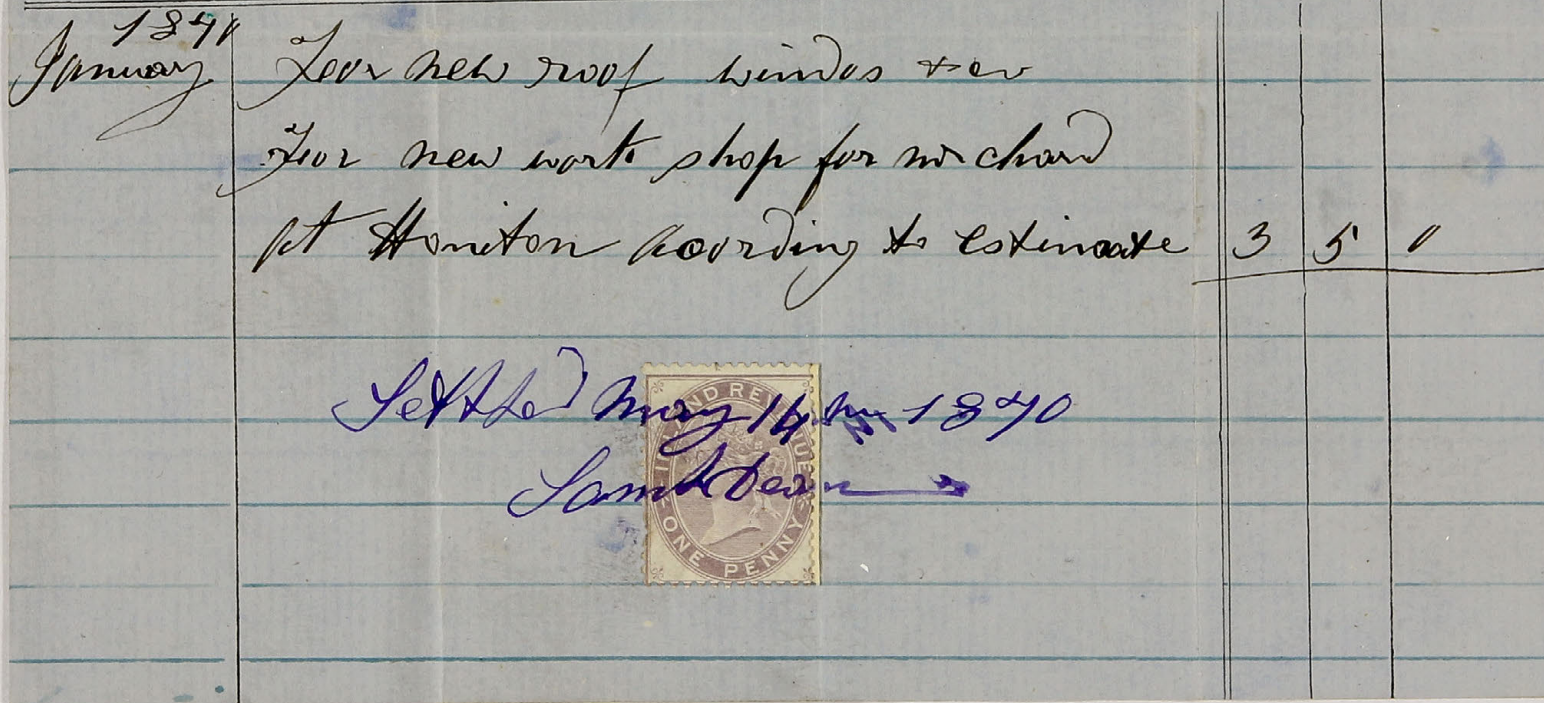 1870
January Foor new roof windos &c
Foor new work shop for mr chard
at Honiton acording to estimate 3 5 0
Settled May 14th 1870
Saml Dean
INLAND REVENUE
ONE PENNY